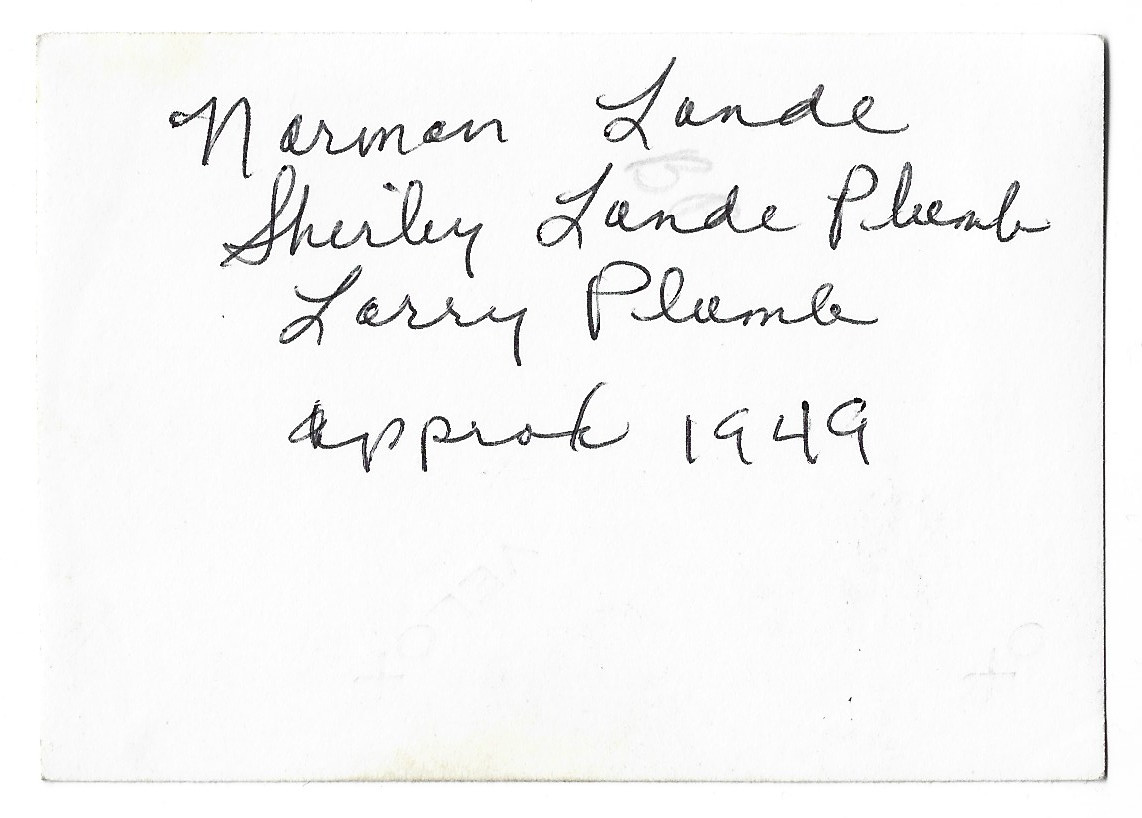 Norman Lande
Shirley Lande Plumb
Larry Plumb
approx 1949